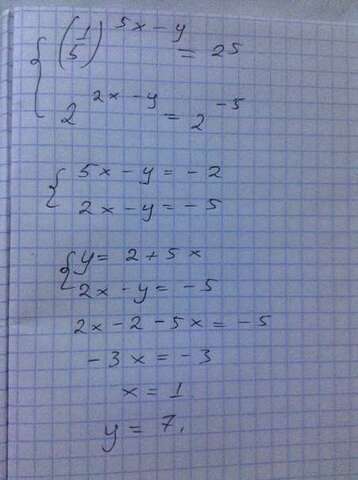 { (1/5)^(5x-y) = 25
2^(2x-y) = 2^(-5)
{ 5x - y = -2
2x - y = -5
{ y = 2 + 5x
2x - y = -5
2x - 2 - 5x = -5
-3x = -3
x = 1
y = 7.